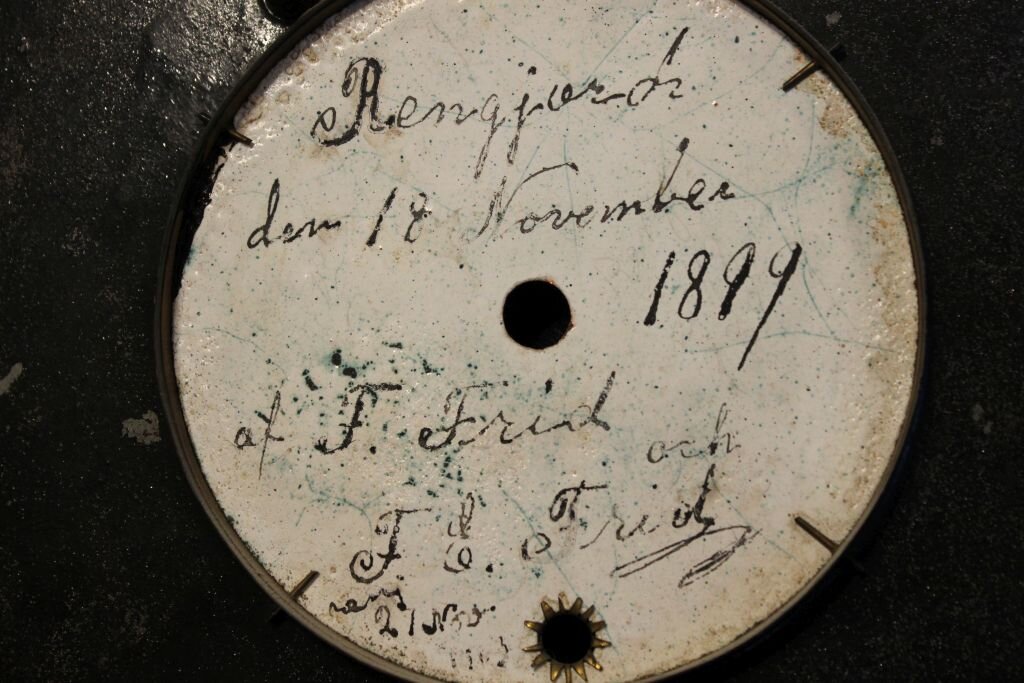 Rengjord
den 18 November
1899
af F. Frid och
F. E. Frid
21 Nov